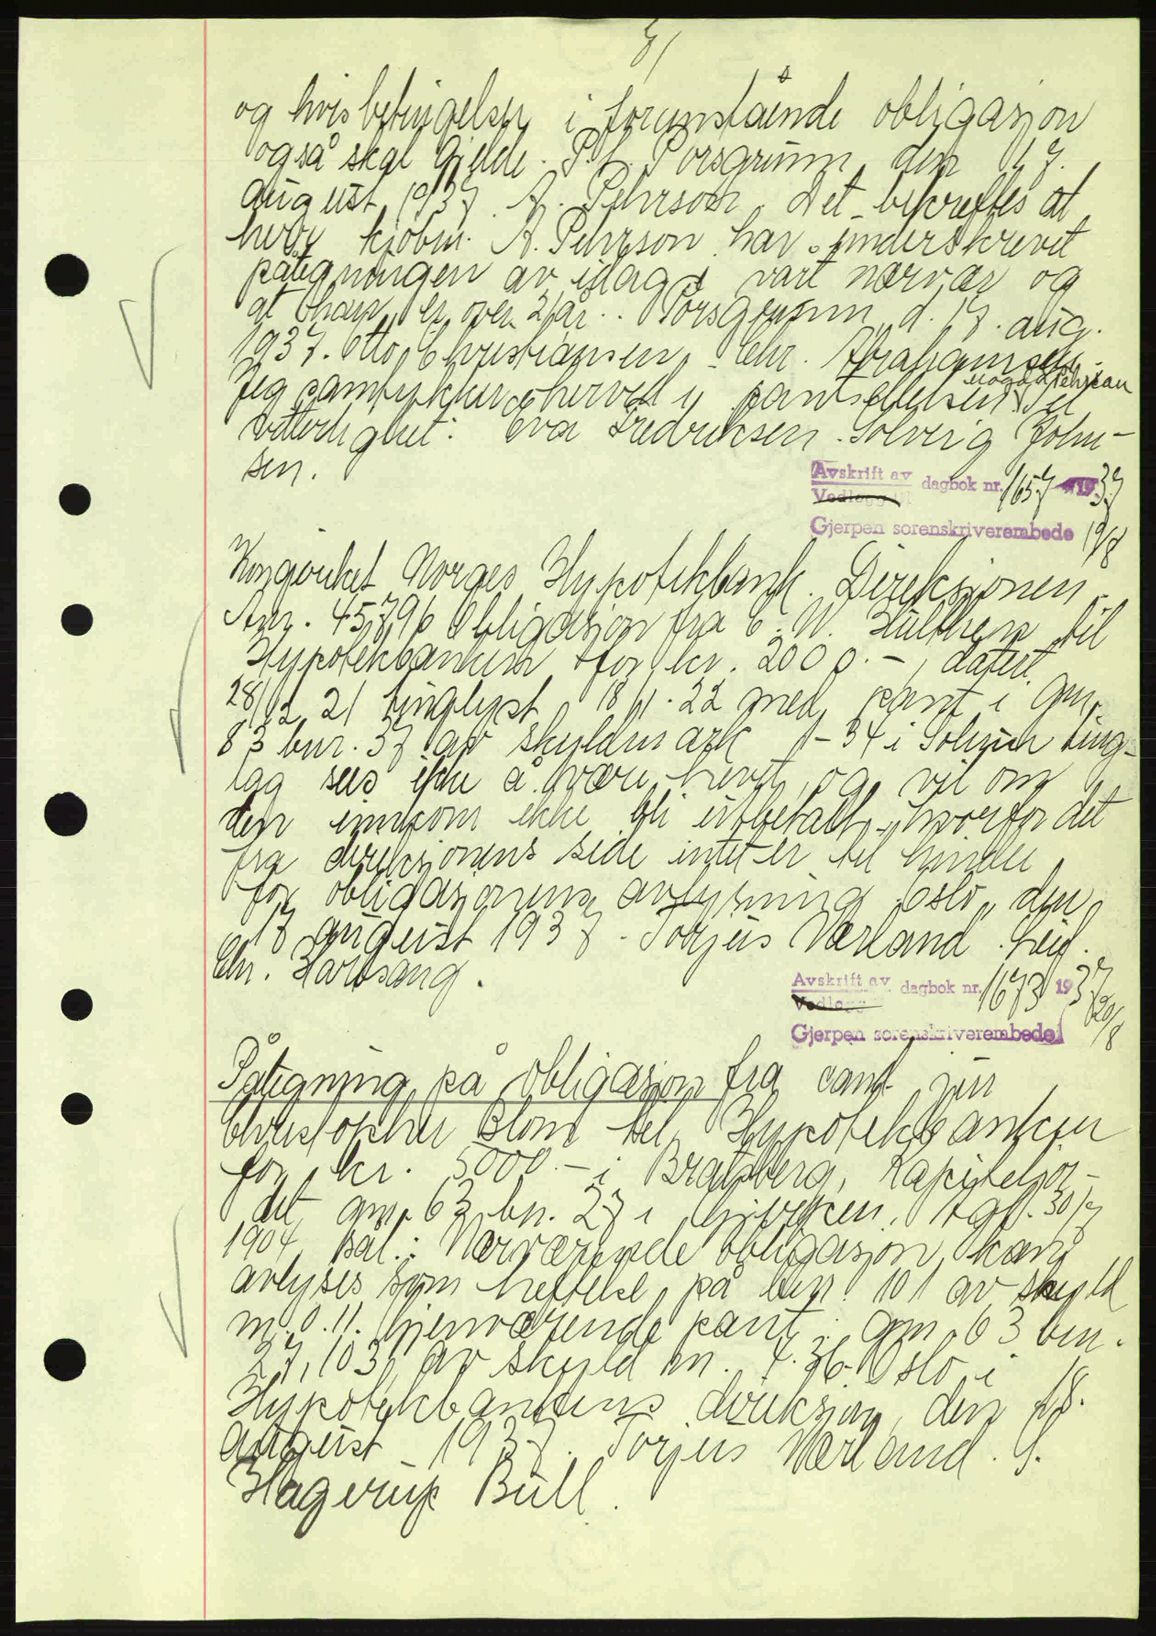 og hvis betingelser i foranstående obligasjon
også skal gjelde. P.t. Porsgrunn den 17.
august 1937. A. Pehrson. Det bekreftes at
herr kjøbm. A. Pehrson har underskrevet
påtegningen av idag i vårt nærvær og
at han er over 21 år. Porsgrunn d. 17. aug.
1937. Otto Christiansen. Chr. Abrahamsen.
Jeg samtykker herved i pantsettelsen. Pehrson Til
vitterlighet: Eva Fredriksen. Solveig John-
sen.
Avskrift av dagbok nr. 1657 1937
Vedlegg
Gjerpen sorenskriverembede 19/8
Kongeriket Norges Hypotekbank. Direksjonen.
Anr. 45796 Obligasjon fra C. W. Hulthen til
Hypotekbanken for kr. 2000.-, datert
28/12 21 tinglyst 18/1.22 med pant i gnr.
83 bnr. 37 av skyldmark 1-34 i Solum ting-
lag sees ikke å være hevet, og vil om
den innkom ikke bli utbetalt, hvorfor det
fra direksjonens side intet er til hinder
for obligasjonens avlysning. Oslo, den
17 august 1937. Torjus Værland. Leif.
Chr. Hartsang.
Avskrift av dagbok nr. 1673 1937
Vedlegg
Gjerpen sorenskriverembede 20/8
Påtegning på obligasjon fra cand. jur
Christopher Blom til Hypotekbanken
for kr. 5000.- i Bratsberg, Kapitelsjor-
det gnr. 63 bn. 27 i Gjerpen. tgl. 30/7
1904 sål.: Nærværende obligasjon kan
avlyses som heftelse på bnr. 101 av skyld
m. 0.11. Gjenværende pant: gnr 63 bnr.
27, 103, av skyld m. 4.36. Oslo i
Hypotekbankens direksjon, den 18.
august 1937. Torjus Værland. S.
Hagerup Bull.